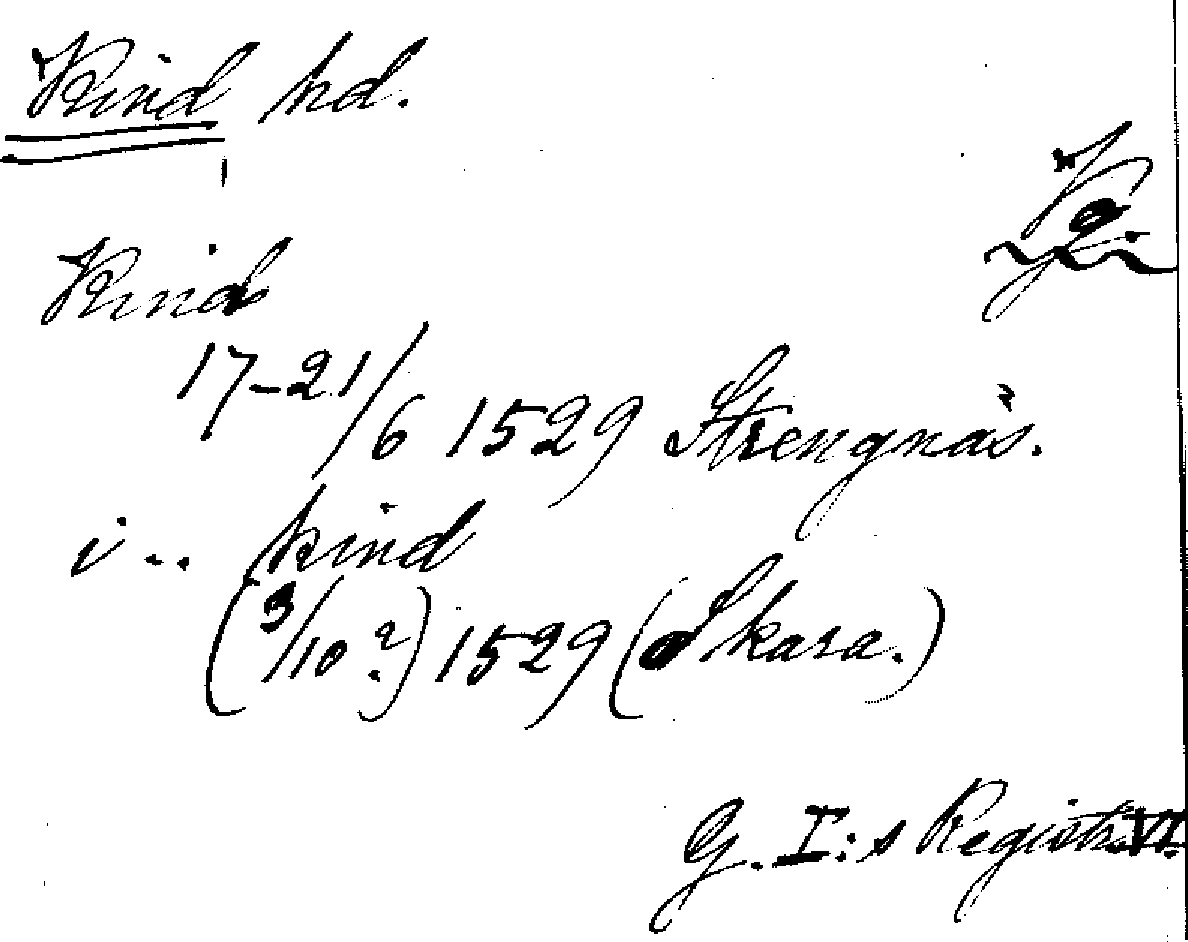 Kind hd.
Vg.
Kind
17-21/6 1529 Strengnäs.
i .. kind
(3/10?) 1529 (Skara.)
G. I:s Registr. VI.